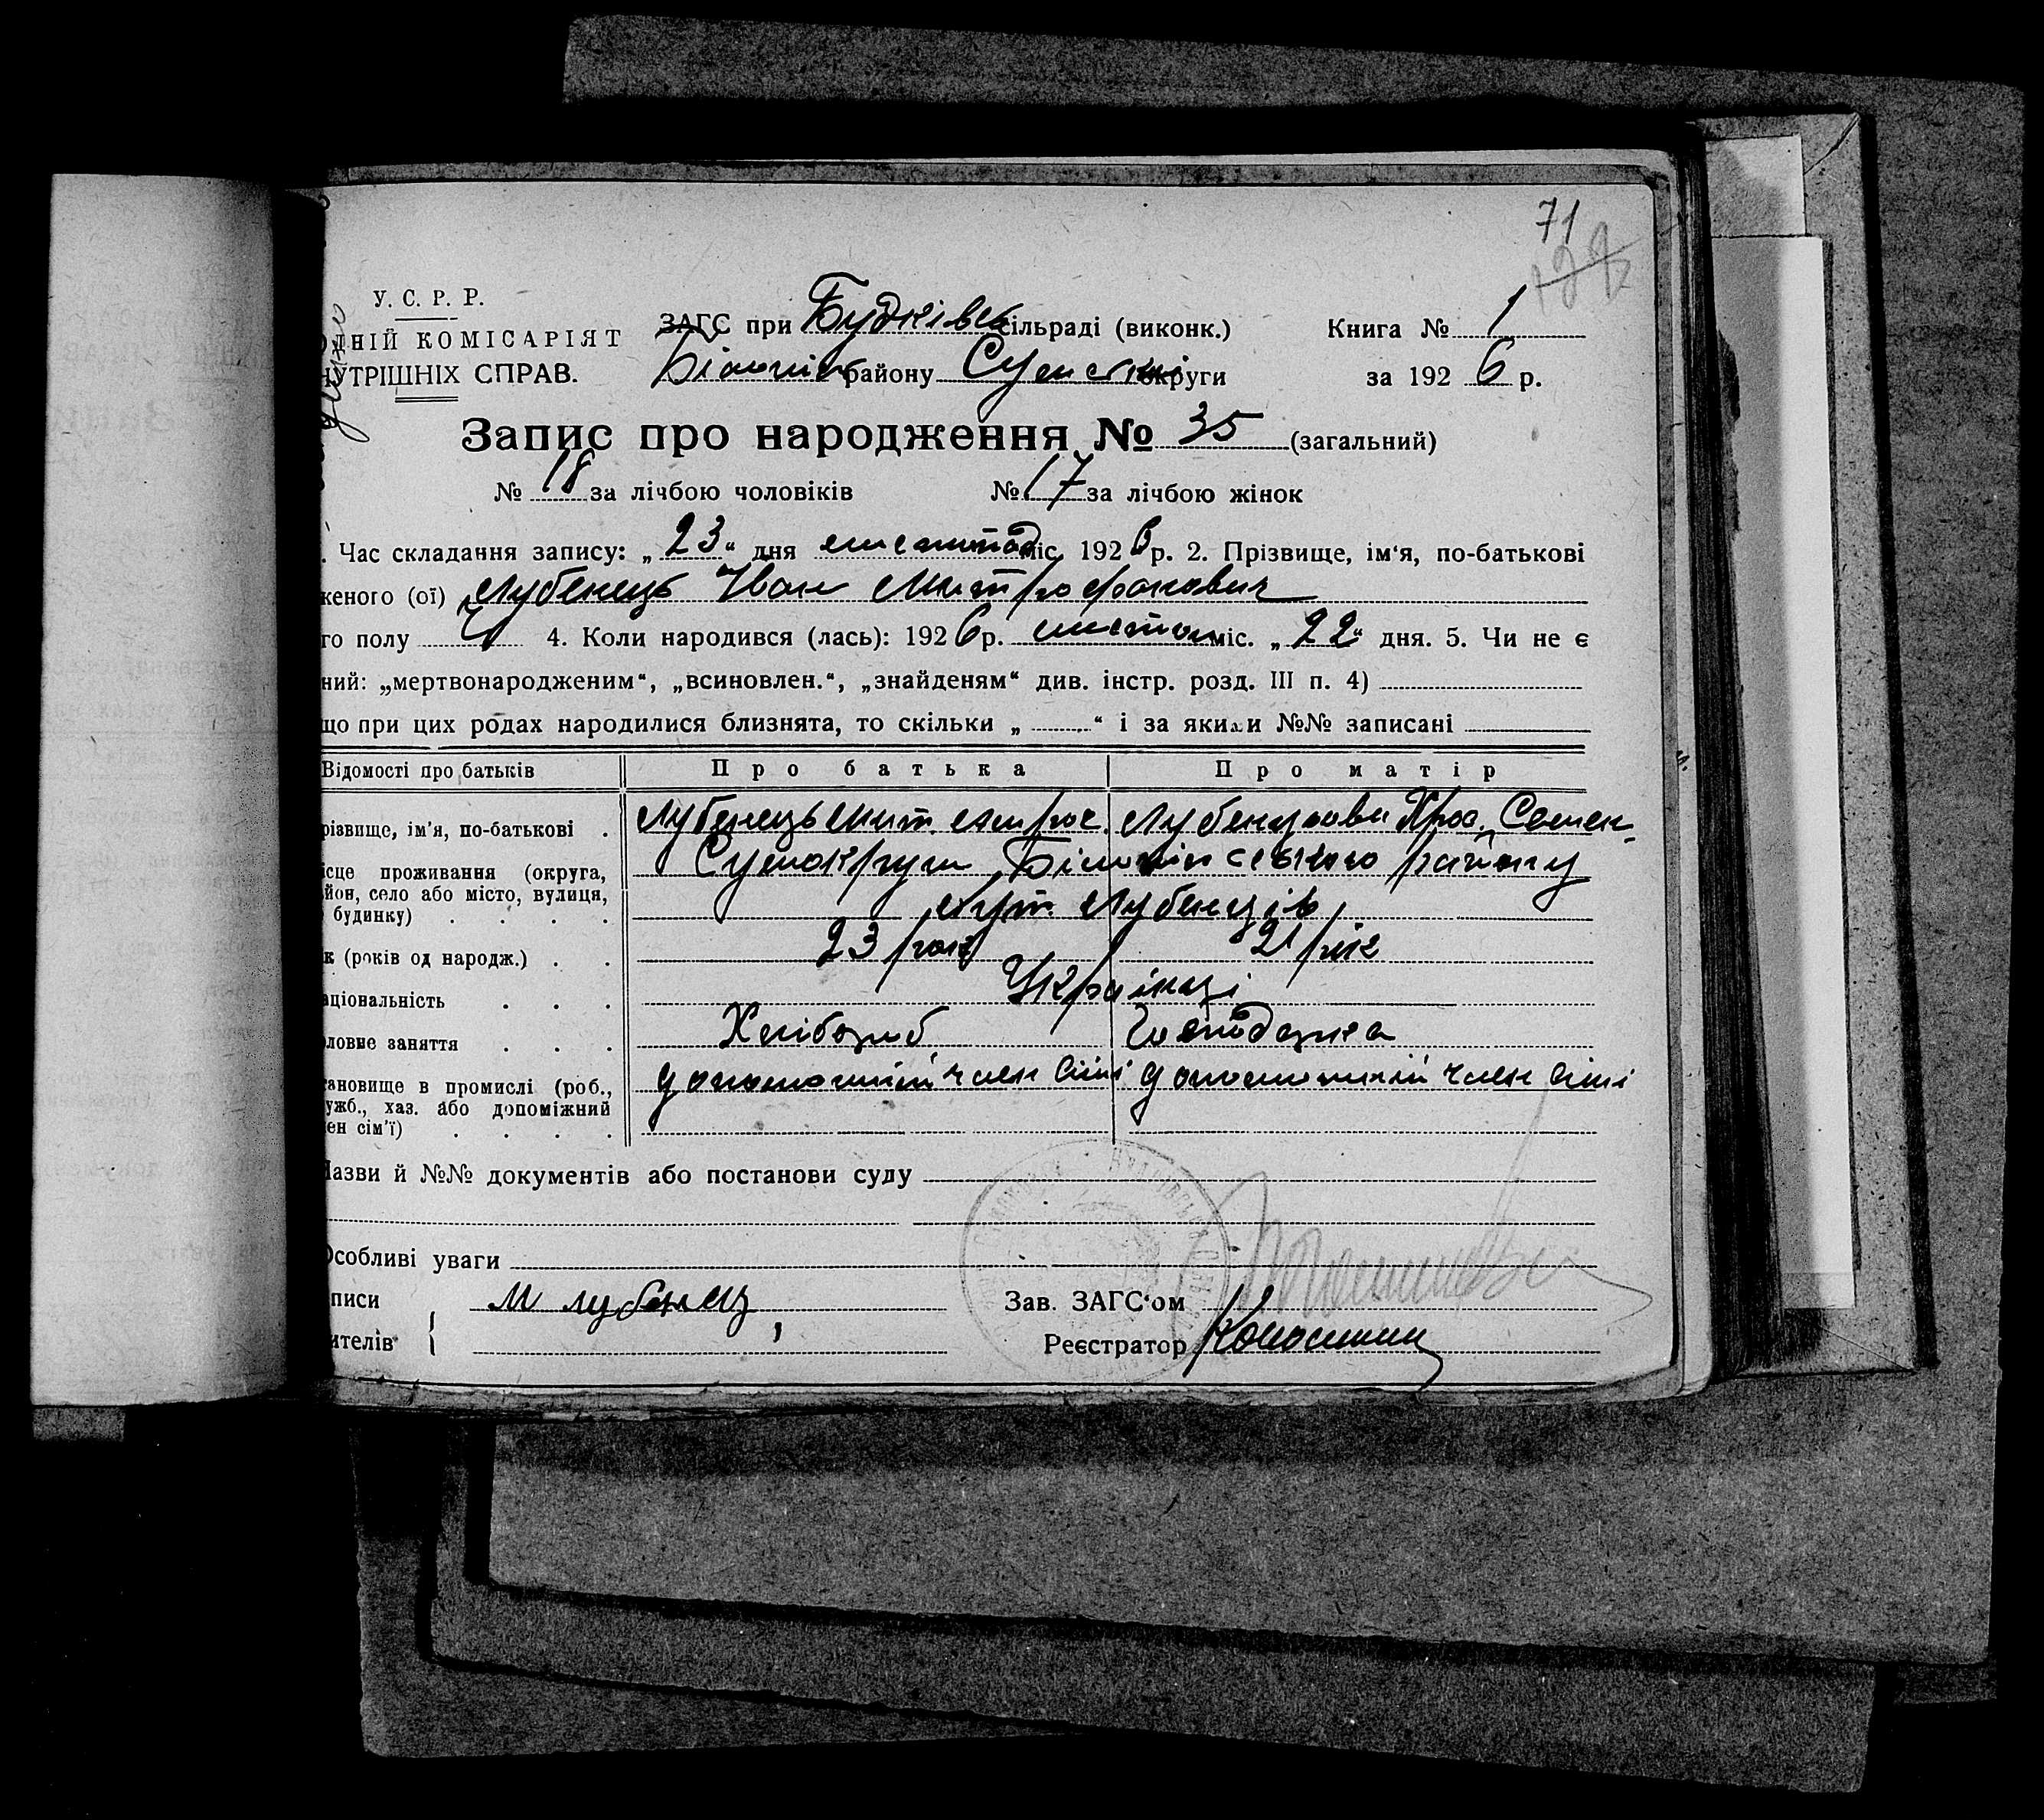 71
У. С. Р. Р.
ОДНІЙ КОМІСАРІЯТ
НУТРІШНІХ СПРАВ.
ЗАГС при Будківсь сільраді (виконк.) Книга № 1
Білопіль району Сумської округи за 1926 р.
Запис про народження № 35 (загальний)
№ 18 за лічбою чоловіків № 17 за лічбою жінок
. Час складання запису: „23“ дня листопад міс. 1926 р. 2. Прізвище, ім‘я, по-батькові
женого (ої) Лубенець Іван Митрофанович
го полу Ч 4. Коли народився (лась): 1926 р. листоп міс. „22“ дня. 5. Чи не є
ний: „мертвонародженим“, „всиновлен.“, „знайденям“ див. інстр. розд. III п. 4)
що при цих родах народилися близнята, то скільки „ “ і за якими №№ записані
Відомості про батьків Про батька Про матір
різвище, ім'я, по-батькові . Лубенець Мит. Лубенцова Семен.
ісце проживання (округа, Сумокруги, Білопільського району
йон, село або місто, вулиця,
будинку) . . . . хут. Лубенців
к (років од народж.) . . 23 роки 21 рік
аціональність . . . Українці
ловне заняття . . . Хлібороб Господарка
ановище в промислі (роб., допоможній член сімї допоможній член сімї
ужб., хаз. або допоміжний
ен сім'ї) . . . .
Назви й №№ документів або постанови суду
Особливі уваги
писи М Лубенец Зав. ЗАГС‘ом
ителів Реєстратор